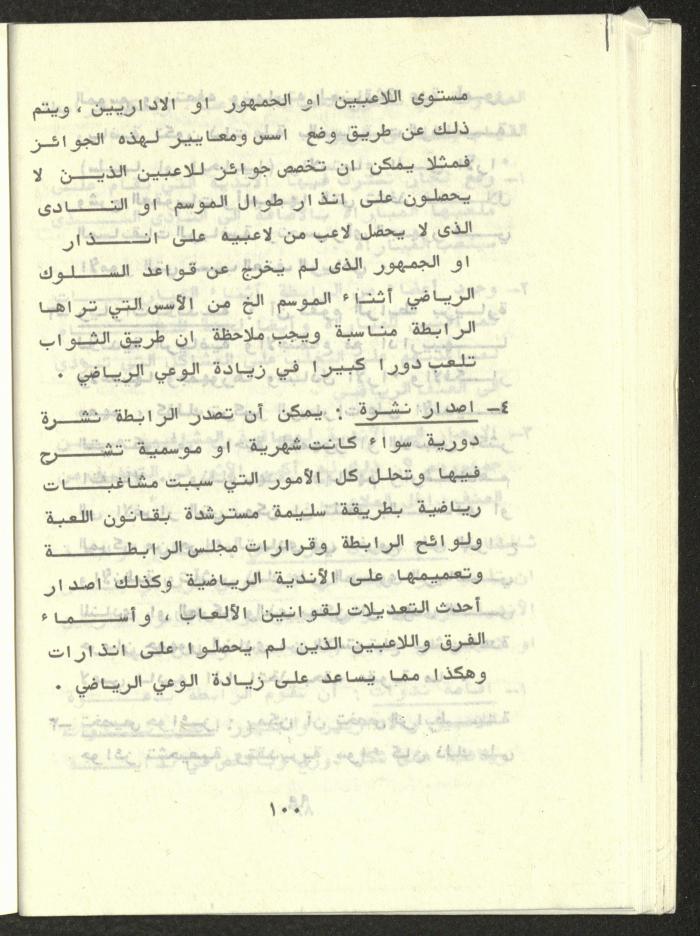 مستوى اللاعبين او الجمهور او الاداريين ، ويتم
ذلك عن طريق وضع اسس ومعايير لهذه الجوائز
فمثلا يمكن ان تخصص جوائز للاعبين الذيـن لا
يحصلون على انذار طوال الموسم او النـــادى
الذى لا يحصل لاعب من لاعبيه على انــــذار
او الجمهور الذى لم يخرج عن قواعد الســلوك
الرياضي أثناء الموسم الخ من الأسس التي تراها
الرابطة مناسبة ويجب ملاحظة ان طريق الثـواب
تلعب دورا كبيرا في زيادة الوعي الرياضي .
٤ــ اصدار نشرة : يمكن أن تصدر الرابطة نشـرة
دورية سواء كانت شهرية او موسمية تشــــرح
فيها وتحلل كل الأمور التي سببت مشاغبــــات
رياضية بطريقة سليمة مسترشدة بقانون اللعبة
ولوائح الرابطة وقرارات مجلس الرابطـــــــة
وتعميمها على الأندية الرياضية وكذلك اصدار
أحدث التعديلات لقوانين الألعاب ، وأســـماء
الفرق واللاعبين الذين لم يحصلوا على انذارات
وهكذا مما يساعد على زيادة الوعي الرياضي .
١٠٠